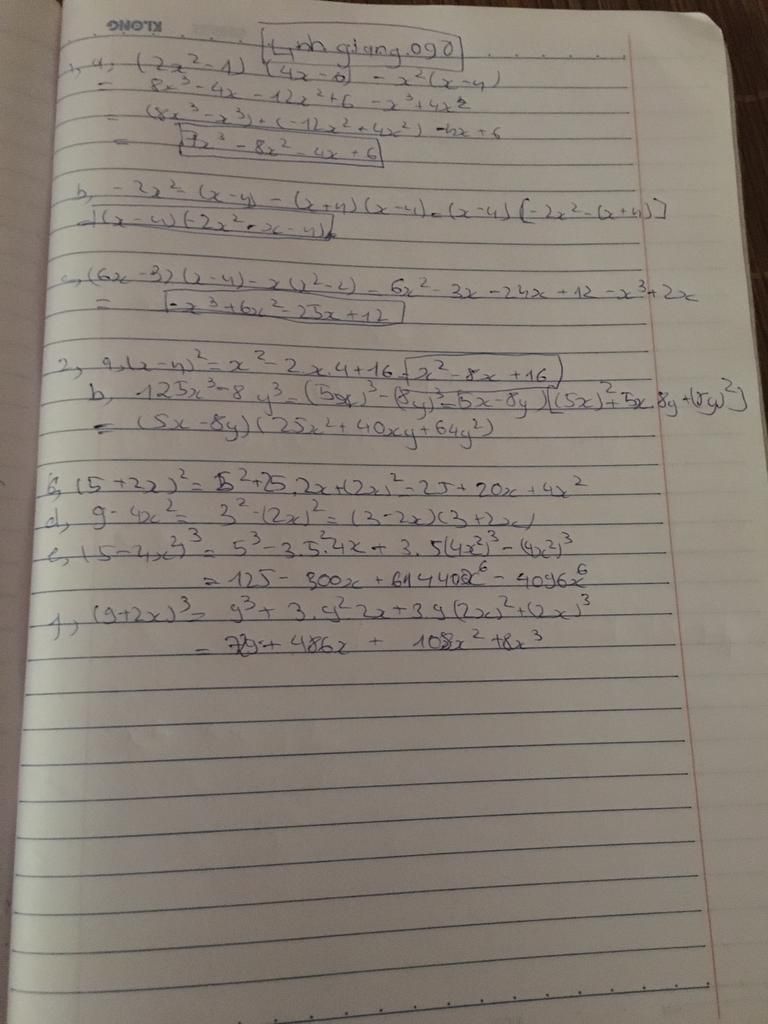 KLONG
Linh giang.090
1, a, (2x²-1) (4x-6) - x²(x-4)
= 8x³ - 4x - 12x² + 6 - x³ + 4x²
= (8x³ - x³) + (-12x² + 4x²) - 4x + 6
= 7x³ - 8x² - 4x + 6
b, - 2x² (x-4) - (x+4) (x-4) = (x-4) [-2x² - (x+4)]
= (x-4) (-2x² - x - 4)
c, (6x - 3) (x-4) - x(x²-2) = 6x² - 3x - 24x + 12 - x³ + 2x
= -x³ + 6x² - 25x + 12
2, a, (x-4)² = x² - 2x.4 + 16 = x² - 8x + 16
b, 125x³ - 8y³ = (5x)³ - (8y)³ = (5x - 8y) [(5x)² + 5x.8y + (8y)²]
= (5x - 8y) (25x² + 40xy + 64y²)
c, (5 + 2x)² = 5² + 2.5.2x + (2x)² = 25 + 20x + 4x²
d, 9 - 4x² = 3² - (2x)² = (3-2x) (3+2x)
e, (5 - 4x²)³ = 5³ - 3.5².4x + 3.5(4x²)³ - (4x²)³
= 125 - 300x + x⁶ - 4096x⁶
f, (9+2x)³ = 9³ + 3.9².2x + 3.9(2x)² + (2x)³
= 729 + 486x + 108x² + 8x³